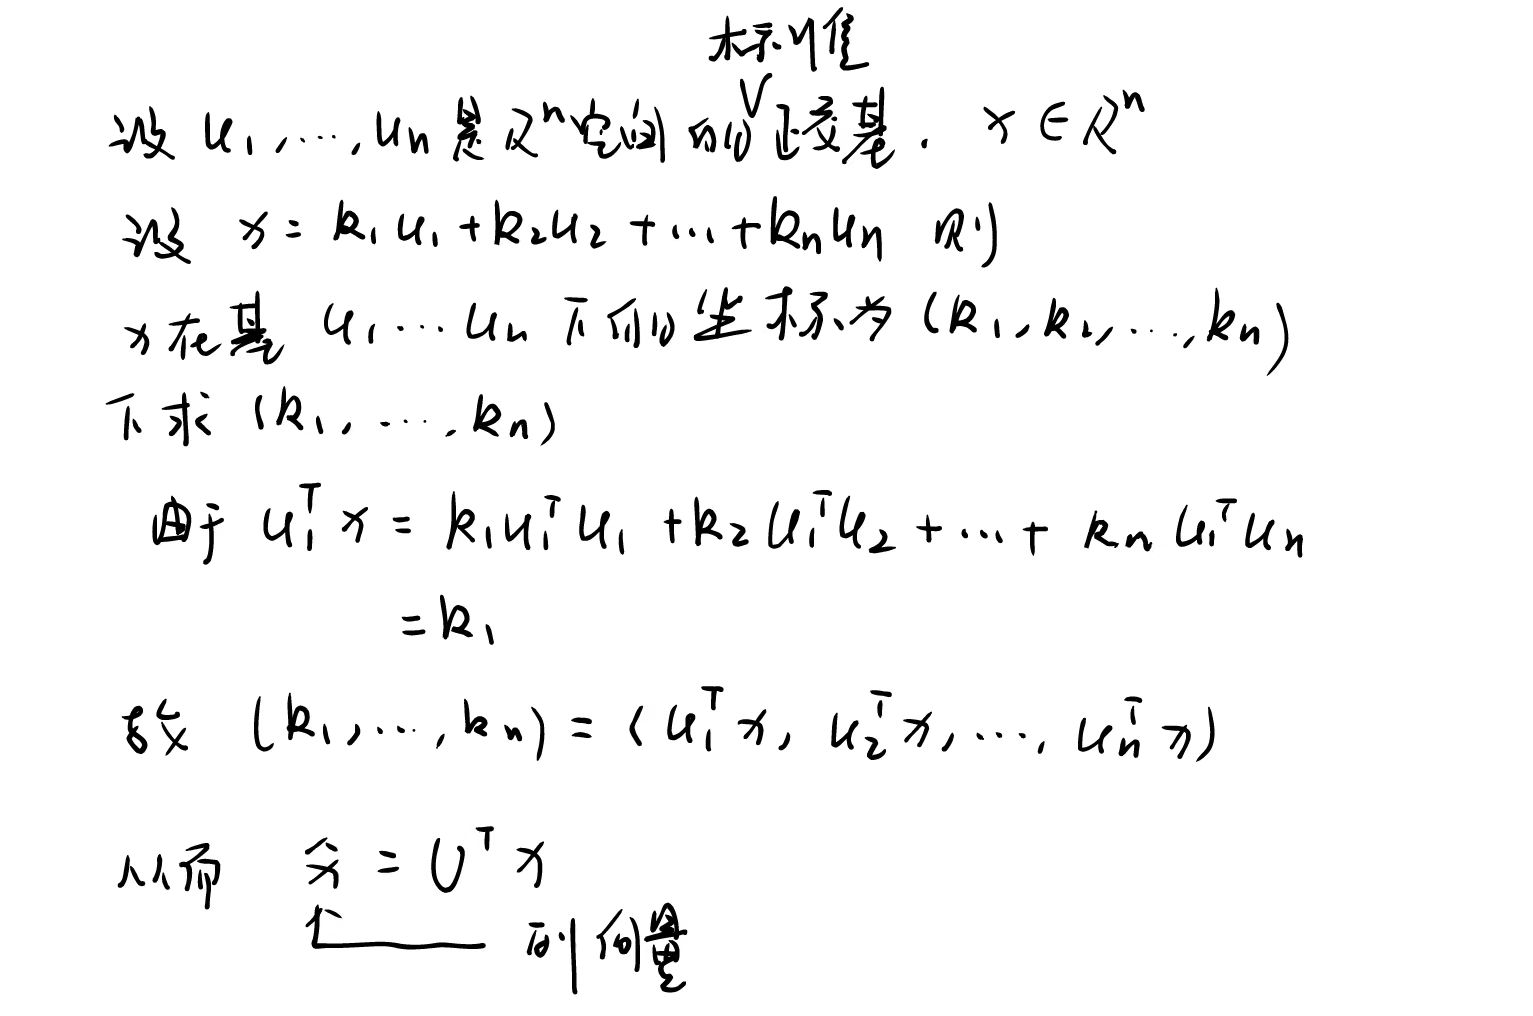 标准
设 u₁,…,uₙ 是 Rⁿ空间的∨正交基. x∈Rⁿ
设 x = k₁u₁+k₂u₂+…+kₙuₙ 则
x在基 u₁…uₙ 下的坐标为 (k₁,k₂,…,kₙ)
下求 (k₁,…,kₙ)
由于 u₁ᵀx = k₁u₁ᵀu₁+k₂u₁ᵀu₂+…+kₙu₁ᵀuₙ
=k₁
故 (k₁,…,kₙ) = (u₁ᵀx, u₂ᵀx,…,uₙᵀx)
从而 x̂ = Uᵀx
列向量